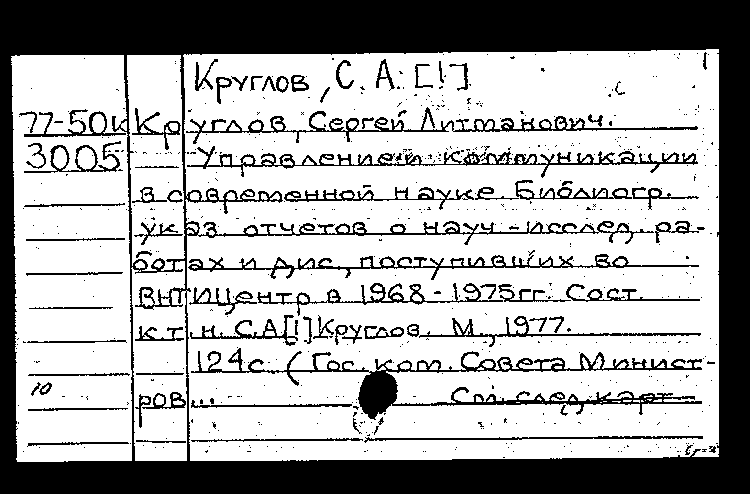 Круглов, С. А. [!]
77-50к Круглов, Сергей Литманович.
3005 Управление и коммуникации
в современной науке. Библиогр.
указ. отчетов о науч-исслед. ра-
ботах и дис., поступивших во
ВНТИЦентр в 1968-1975гг. Сост.
к.т.н. С.А[!] Круглов. М., 1977.
124с. (Гос. ком. Совета Минист-
10 ров...
См. след. карт